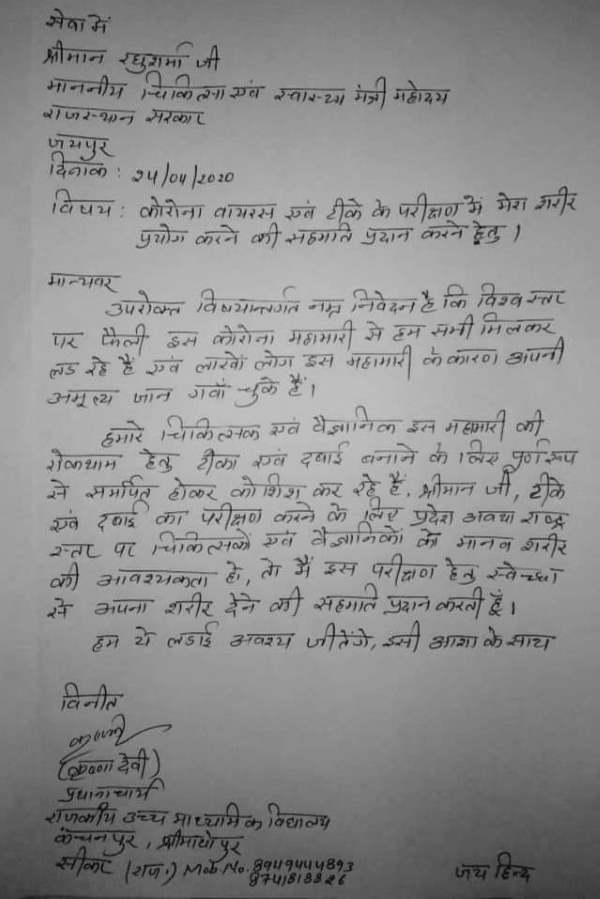 सेवा में
श्रीमान रघुशर्मा जी
माननीय चिकित्सा एवं स्वास्थ्य मंत्री महोदय
राजस्थान सरकार
जयपुर
दिनांक : 24/04/2020
विषय : कोरोना वायरस एवं टीके के परीक्षण में मेरा शरीर
प्रयोग करने की सहमति प्रदान करने हेतु ।
मान्यवर
उपरोक्त विषयान्तर्गत नम्र निवेदन है कि विश्व स्तर
पर फैली इस कोरोना महामारी से हम सभी मिलकर
लड रहे हैं एवं लाखों लोग इस महामारी के कारण अपनी
अमूल्य जान गवाँ चुके हैं ।
हमारे चिकित्सक एवं वैज्ञानिक इस महामारी की
रोकथाम हेतु टीका एवं दवाई बनाने के लिए पूर्ण रूप
से समर्पित होकर कोशिश कर रहे हैं, श्रीमान जी, टीके
एवं दवाई का परीक्षण करने के लिए प्रदेश अथवा राष्ट्र
स्तर पर चिकित्सकों एवं वैज्ञानिकों को मानव शरीर
की आवश्यकता हो, तो मैं इस परीक्षण हेतु स्वेच्छा
से अपना शरीर देने की सहमति प्रदान करती हूँ ।
हम ये लडाई अवश्य जीतेंगे, इसी आशा के साथ
विनीत
(कृष्णा देवी)
प्रधानाचार्य
राजकीय उच्च माध्यमिक विद्यालय
कंचनपुर, श्रीमाधोपुर
सीकर (राज.) Mob. No. 8949444893
8741818826
जय हिन्द